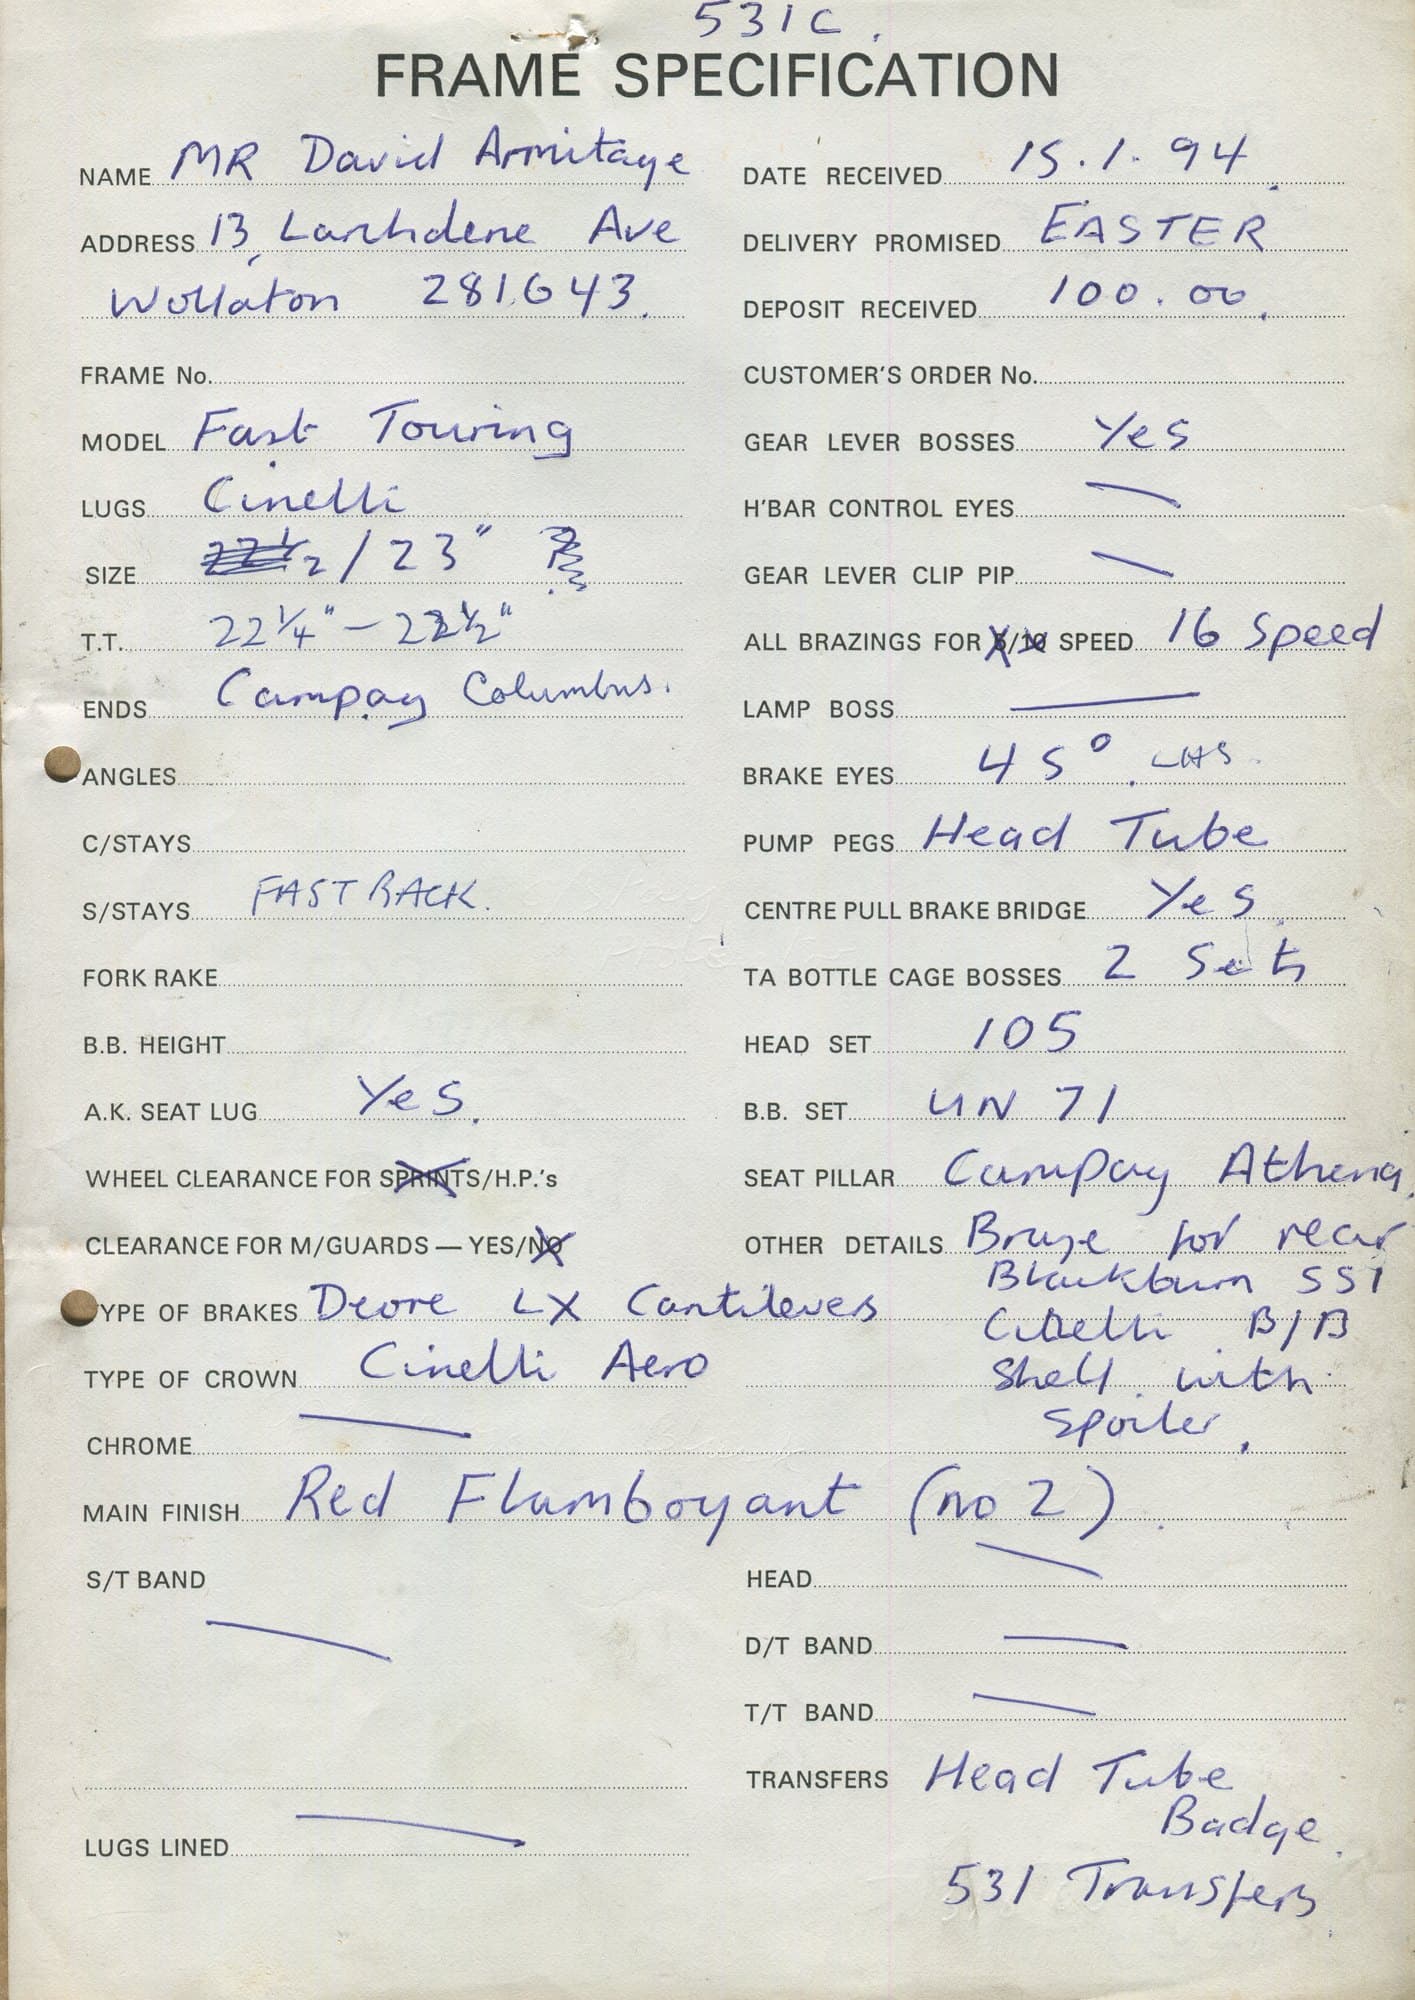 531C.
FRAME SPECIFICATION
NAME MR David Armitage
ADDRESS 13, Larchdene Ave
Wollaton 281643.
FRAME No.
MODEL Fast Touring
LUGS Cinelli
SIZE 22 1/2 / 23"
T.T. 22 1/4" - 22 1/2"
ENDS Campag Columbus.
ANGLES
C/STAYS
S/STAYS FASTBACK.
FORK RAKE
B.B. HEIGHT
A.K. SEAT LUG Yes.
WHEEL CLEARANCE FOR SPRINTS/H.P.'s
CLEARANCE FOR M/GUARDS — YES/NO
TYPE OF BRAKES Deore LX Cantilevers
TYPE OF CROWN Cinelli Aero
CHROME
DATE RECEIVED 15.1.94.
DELIVERY PROMISED EASTER
DEPOSIT RECEIVED 100.00.
CUSTOMER'S ORDER No.
GEAR LEVER BOSSES Yes
H'BAR CONTROL EYES
GEAR LEVER CLIP PIP
ALL BRAZINGS FOR 5/10 SPEED 16 Speed
LAMP BOSS
BRAKE EYES 45°. LHS.
PUMP PEGS Head Tube
CENTRE PULL BRAKE BRIDGE Yes.
TA BOTTLE CAGE BOSSES 2 Sets
HEAD SET 105
B.B. SET UN 71
SEAT PILLAR Campag Athena.
OTHER DETAILS Braze for rear
Blackburn SS1
Cinelli B/B
Shell with
Spoiler.
MAIN FINISH Red Flamboyant (no 2).
S/T BAND
LUGS LINED
HEAD
D/T BAND
T/T BAND
TRANSFERS Head Tube
Badge.
531 Transfers